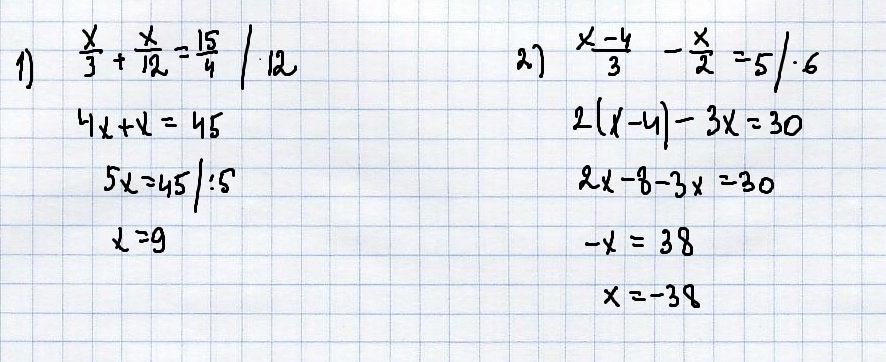 1) x/3 + x/12 = 15/4 / · 12
4x + x = 45
5x = 45 / : 5
x = 9
2) (x - 4)/3 - x/2 = 5 / · 6
2(x - 4) - 3x = 30
2x - 8 - 3x = 30
-x = 38
x = -38